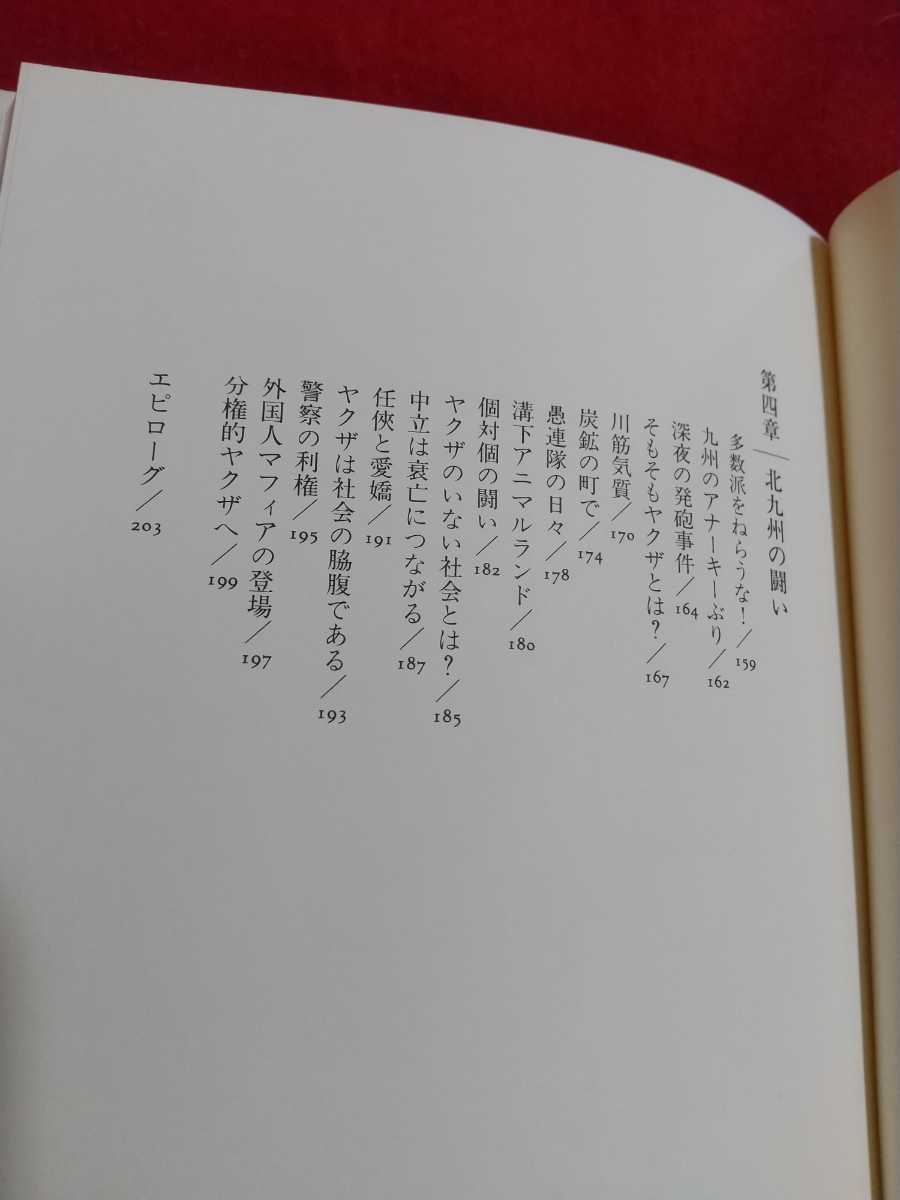 第四章／北九州の闘い
多数派をねらうな！／159
九州のアナーキーぶり／162
深夜の発砲事件／164
そもそもヤクザとは？／167
川筋気質／170
炭鉱の町で／174
愚連隊の日々／178
溝下アニマルランド／180
個対個の闘い／182
ヤクザのいない社会とは？／185
中立は衰亡につながる／187
任俠と愛嬌／191
ヤクザは社会の脇腹である／193
警察の利権／195
外国人マフィアの登場／197
分権的ヤクザへ／199
エピローグ／203